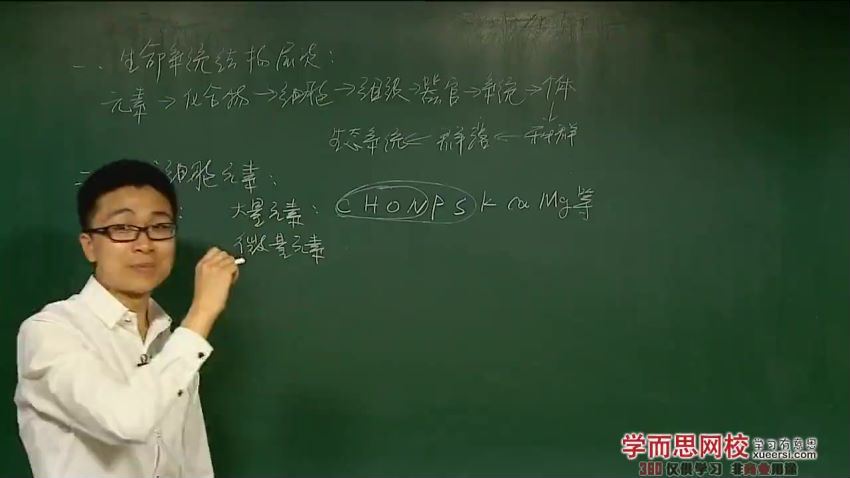 一、生命系统结构层次：
元素→化合物→细胞→组织→器官→系统→个体
↓
生态系统←群落←种群
二 细胞元素：
： 大量元素：C H O N P S K Ca Mg等
微量元素
学而思网校 学习有意思
xueersi.com
360 仅供学习 非商业用途